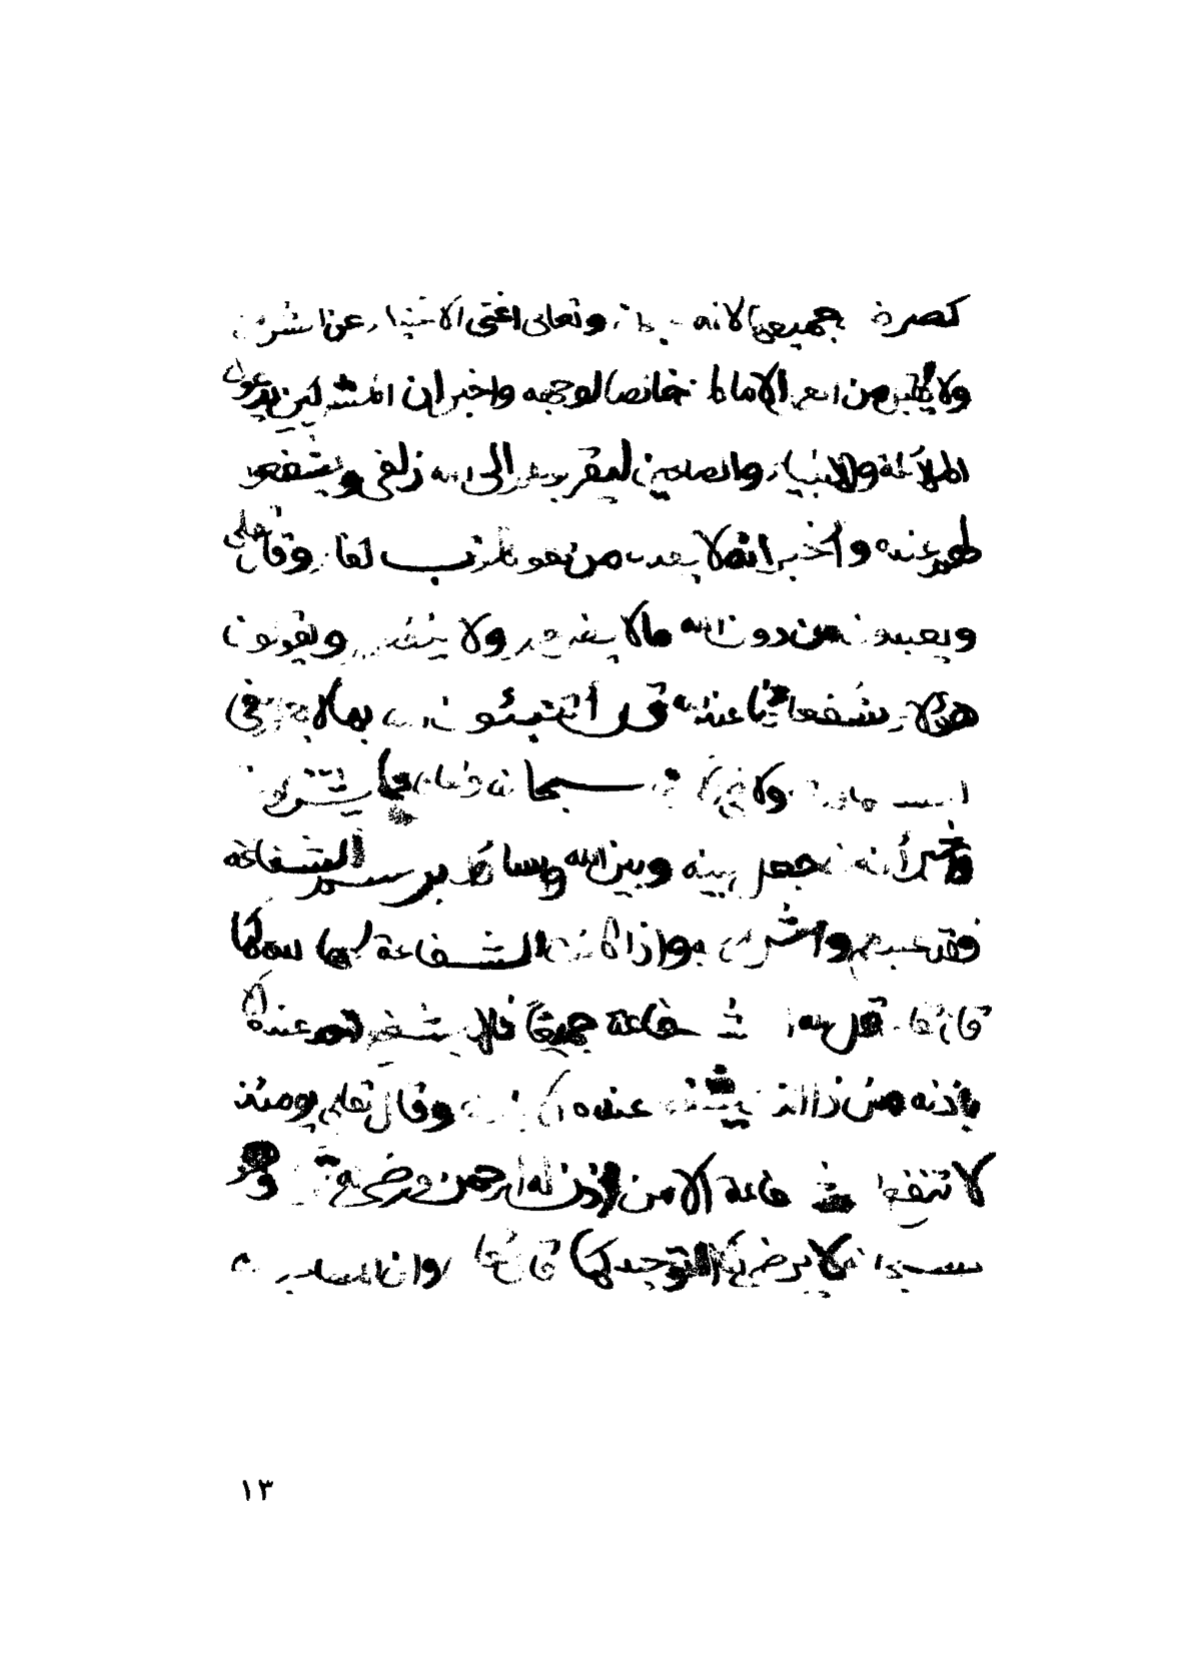 كصرف جميعها لانه سبحانه وتعالى اغنى الاغنياء عن الشرك
ولا يقبل من العمل الا ما كان خالصا لوجهه واخبر ان المشركين يدعون
الملائكة والانبياء والصالحين ليقربوهم الى الله زلفى ويشفعوا
لهم عنده وأخبر انه لا يهدى من هو كاذب كفار وقال تعالى
ويعبدون من دون الله مالا يضرهم ولا ينفعهم ويقولون
هؤلاء شفعاؤنا عند الله قل أتنبئون الله بما لا يعلم في
السموات ولا في الارض سبحانه وتعالى عما يشركون
واخبر أنه من جعل بينه وبين الله وسائط يسئلهم الشفاعة
فقد عبدهم واشرك بهم واذا كانت الشفاعة كلها لله كما
قال تعالى قل لله الشفاعة جميعاً فلا يشفع عنده الا
باذنه من ذا الذي يشفع عنده الا باذنه وقال تعالى يومئذ
لا تنفع الشفاعة الا من اذن له الرحمن ورضي له قولا وهو
سبحانه لا يرضى الا التوحيد كما قال تعالى وان المساجد لله
١٣